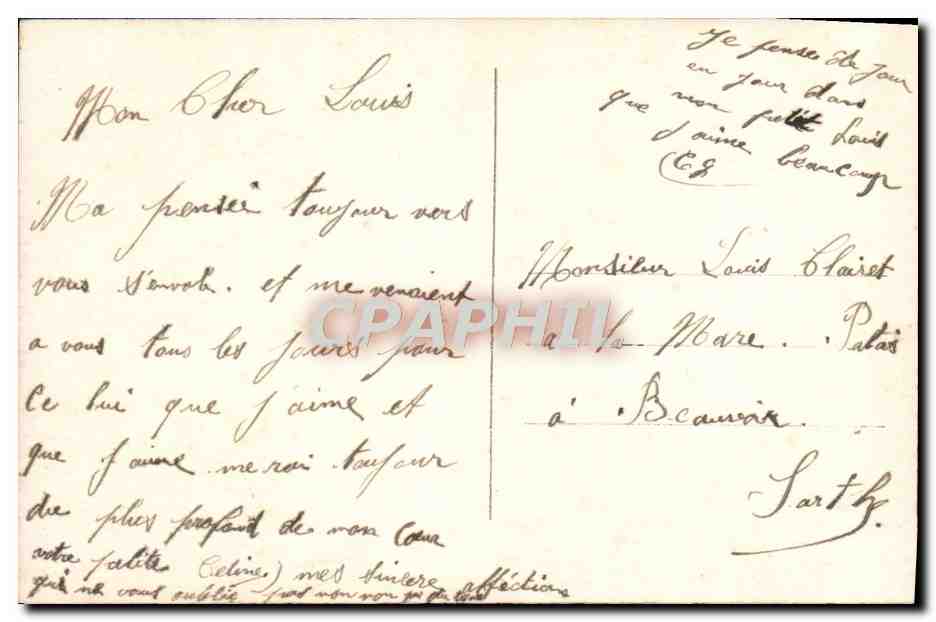 Mon Cher Louis
Ma pensée toujour vers
vous s'envole. et me venaient
a vous tous les jours pour
Ce lui que j'aime et
que j'aime merai toujour
du plus profond de mon Cœur
votre petite Celine) mes sincere afféction
qui ne vous oublie pas non non
Je pense de jour
en jour dans
mon petit Louis
que j'aime beaucoup
CG
Monsieur Louis Clairet
a la Mare. Patais
à Beauvoir.
Sarthe
CPAPHIL